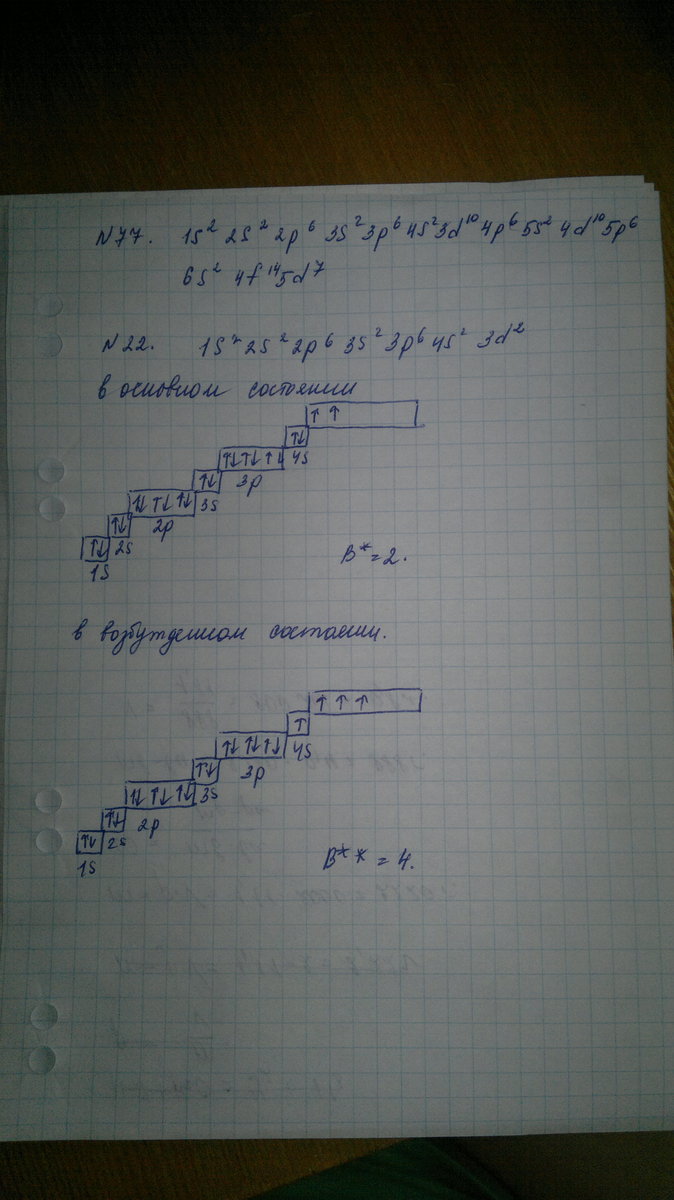 N77. 1s² 2s² 2p⁶ 3s² 3p⁶ 4s² 3d¹⁰ 4p⁶ 5s² 4d¹⁰ 5p⁶
6s² 4f¹⁴ 5d⁷
N22. 1s² 2s² 2p⁶ 3s² 3p⁶ 4s² 3d²
в основном состоянии
↑ ↑
↑↓
↑↓ ↑↓ ↑↓ 4s
↑↓ 3p
↑↓ ↑↓ ↑↓ 3s
↑↓ 2p
↑↓ 2s
1s
B* = 2.
в возбужденном состоянии.
↑ ↑ ↑
↑
↑↓ ↑↓ ↑↓ 4s
↑↓ 3p
↑↓ ↑↓ ↑↓ 3s
↑↓ 2p
↑↓ 2s
1s
B** = 4.